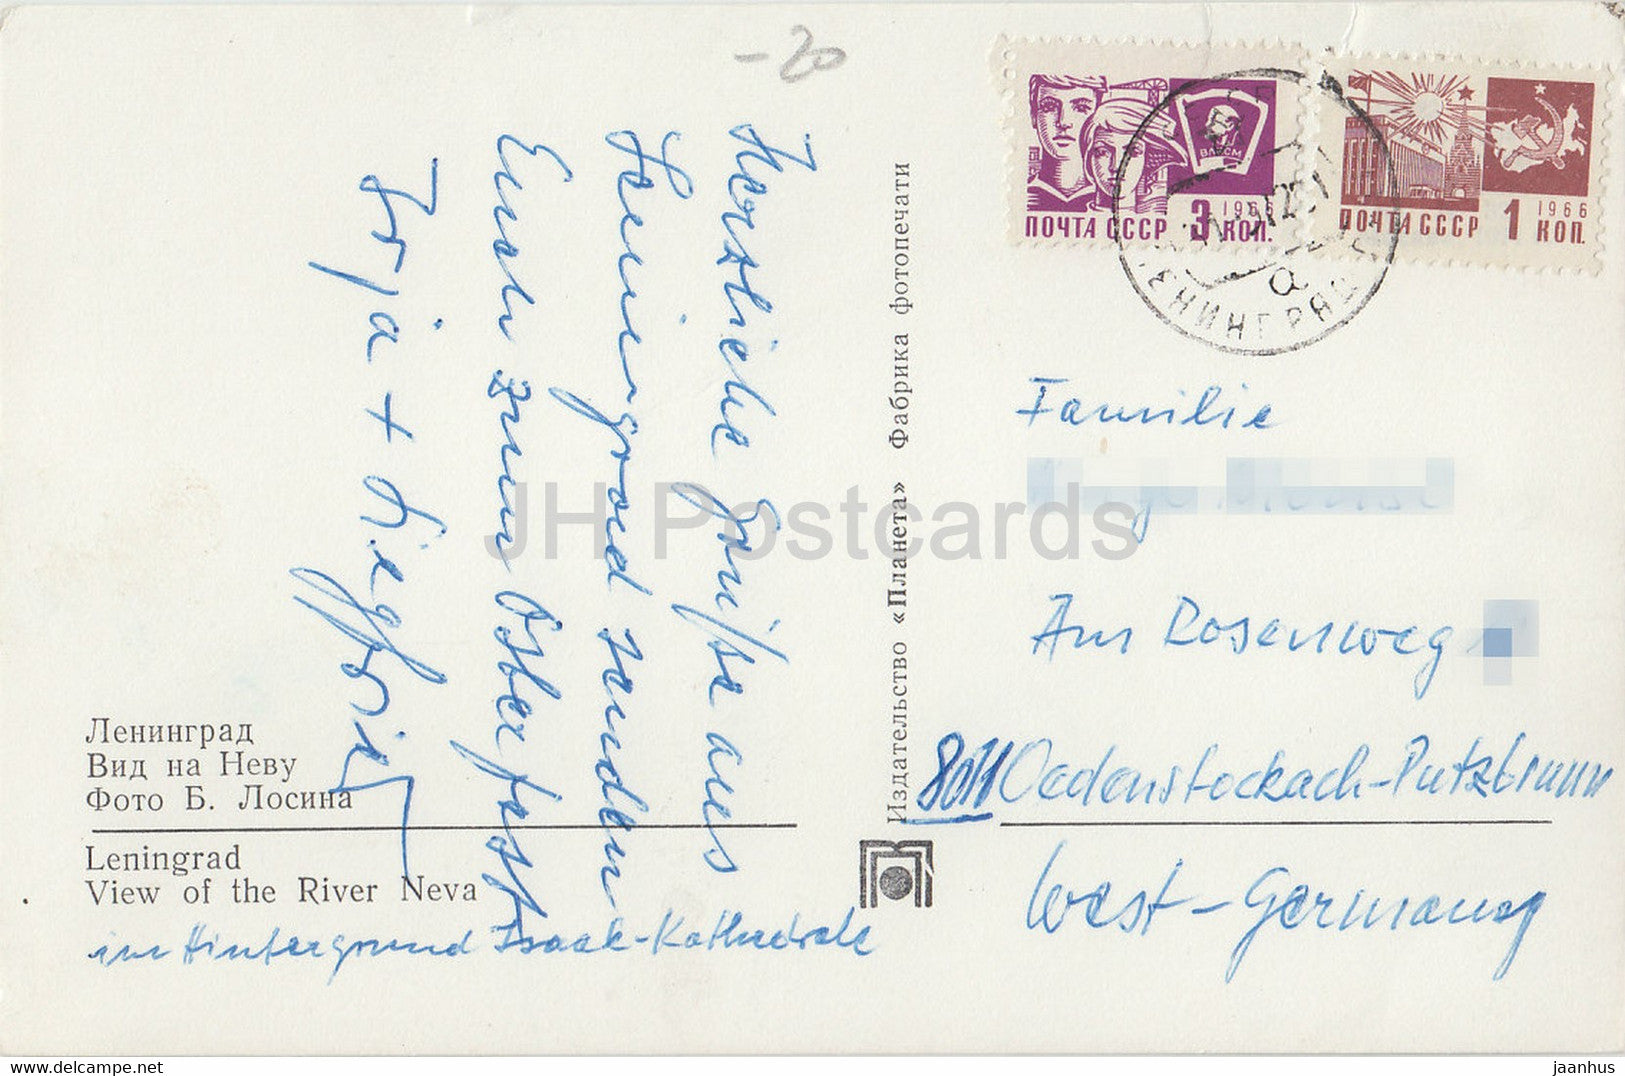 -20
Herzliche Grüße aus
Leningrad senden
Euch zum Osterfest
Tanja + Siegfried
Ленинград
Вид на Неву
Фото Б. Лосина
Leningrad
View of the River Neva
im Hintergrund Isaak-Kathedrale
Издательство «Планета» Фабрика фотопечати
ВЛКСМ
1966
ПОЧТА СССР 3 КОП.
1966
ПОЧТА СССР 1 КОП.
ЛЕНИНГРАД
Familie
Am Rosenweg
8011 Oedenstockach-Putzbrunn
West-Germany
JH Postcards
jaanhus